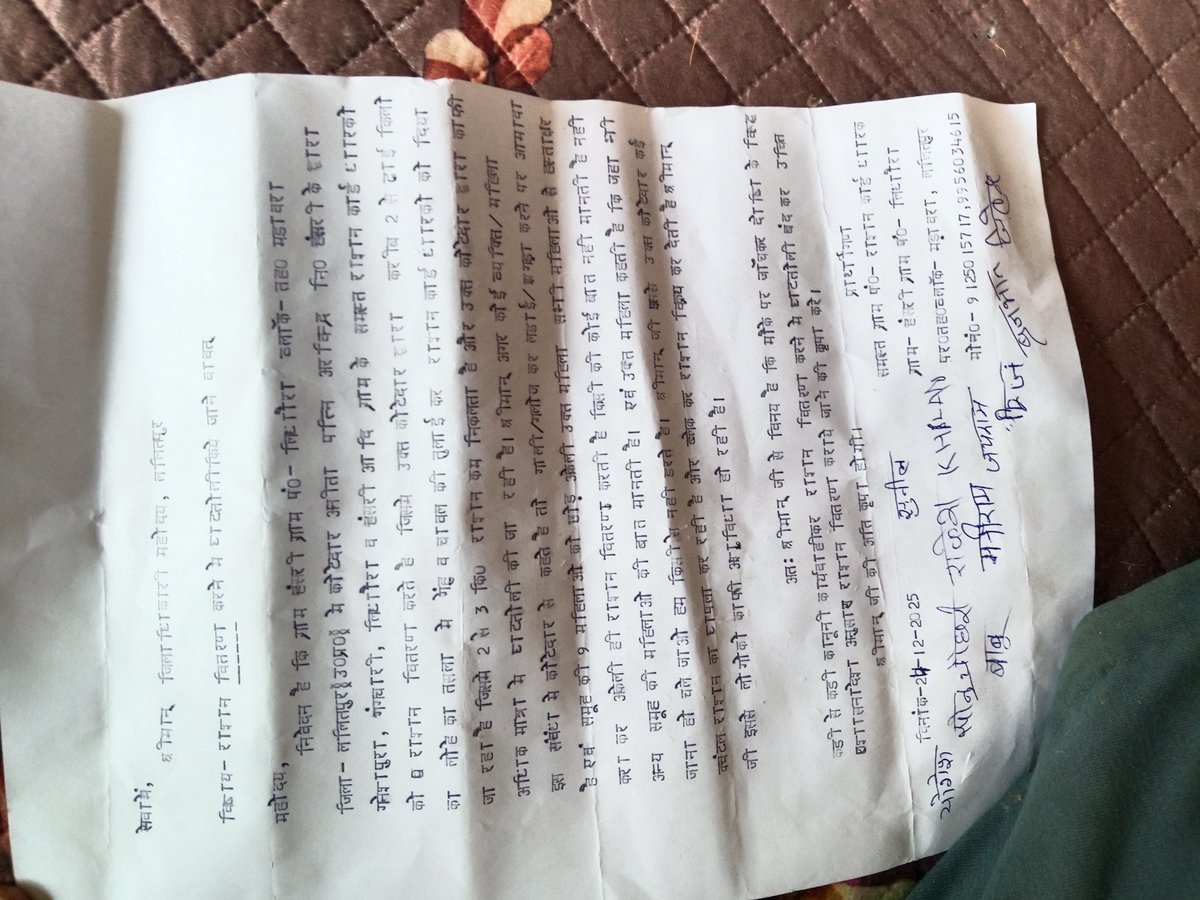 सेवामें,
श्रीमान् जिलाधिकारी महोदय, ललितपुर
विषय- राशन वितरण करने मे घटतोली किये जाने बावत्
महोदय,
निवेदन है कि ग्राम हंसरी ग्राम पं०- लिधौरा ब्लॉक- तह० मडावरा
जिला- ललितपुर उ0प्र0 मे कोटेदार अनीता पत्नि अरविन्द्र नि० हंसरी के द्वारा
गंगचारी, लिधौरा व हंसरी आदि ग्राम के समस्त राशन कार्ड धारको
को राशन वितरण करते है जिसमे उक्त कोटेदार द्वारा करीब 2 से ढाई किलो
का लोहे का तसला मे गेंहू व चावल की तुलाई कर राशन कार्ड धारको को दिया
जा रहा है जिसमे 2 से 3 कि० राशन कम निकलता है और उक्त कोटेदार द्वारा काफी
अधिक मात्रा मे घटतोली की जा रही है। श्रीमान् अगर कोई व्यक्ति/महिला
इस संबंध मे कोटेदार से कहते है तो गाली/गलोज कर लडाई/झगडा करने पर आमादा
है एवं समूह की 9 महिलाओ को छोड अकेली उक्त महिला सभी महिलाओ से हस्ताक्षर
करा कर अकेली ही राशन वितरण करती है किसी की कोई बात नही मानती है नही
अन्य समूह की महिलाओ की बात मानती है। एवं उक्त महिला कहती है कि जहां भी
जाना हो चले जाओ हम किसी से नही डरते है। श्रीमान् जी उक्त कोटेदार कई
क्वंटल राशन का घपला कर रही है और ब्लेक कर राशन विक्रय कर देती है श्रीमान्
जी इससे लोगोको काफी असुविधा हो रही है।
अतः श्रीमान् जी से विनय है कि मौके पर जॉचकर दोषियो के विरूद्ध
कडी से कडी कानूनी कार्यवाहीकर राशन वितरण करने मे घटतोली बंद कर उक्त
राशन वितरण कराये जाने की कृपा करे।
श्रीमान् जी की अति कृपा होगी।
प्रार्थीगण
समस्त ग्राम पं०- राशन कार्ड धारक
ग्राम- हंसरी ग्राम पं०- लिधौरा
दिनांक- 24-12-2025 सुनील पर0तह0ब्लॉक- मंडावरा, ललितपुर
मो०नं०- 9125015717,9956034615
राजेश KHILAN